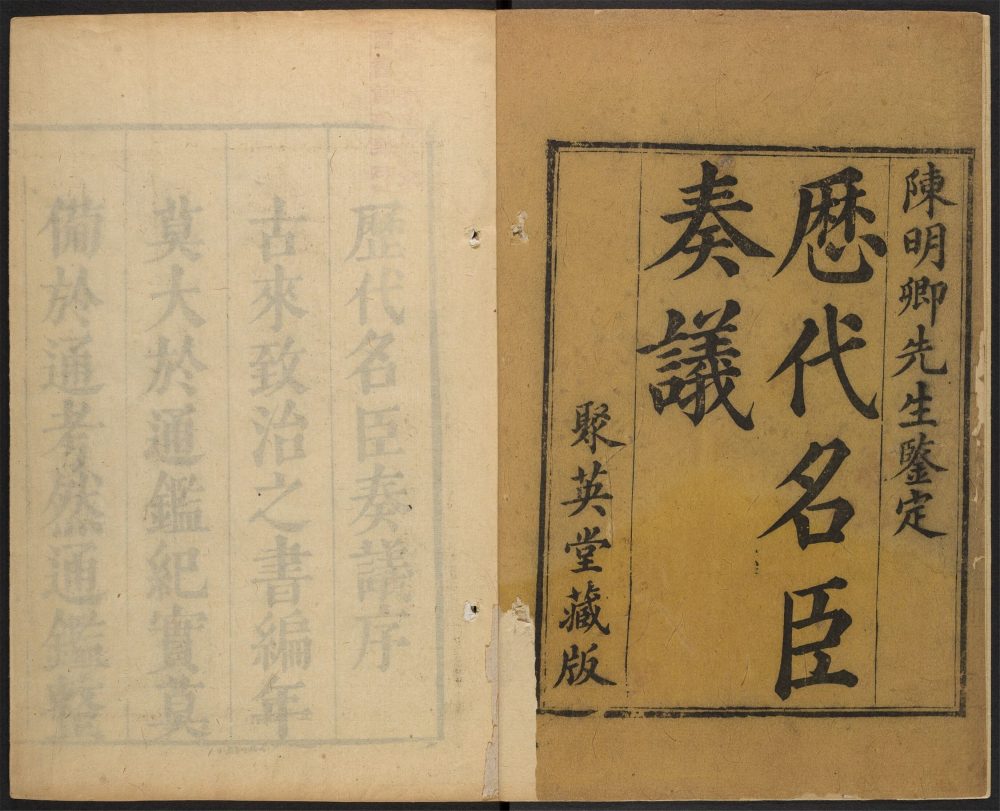 陳明卿先生鑒定
歴代名臣
奏議
聚英堂藏版
歷代名臣奏議序
古來致治之書編年
莫大於通鑑紀實莫
備於通考然通鑑整